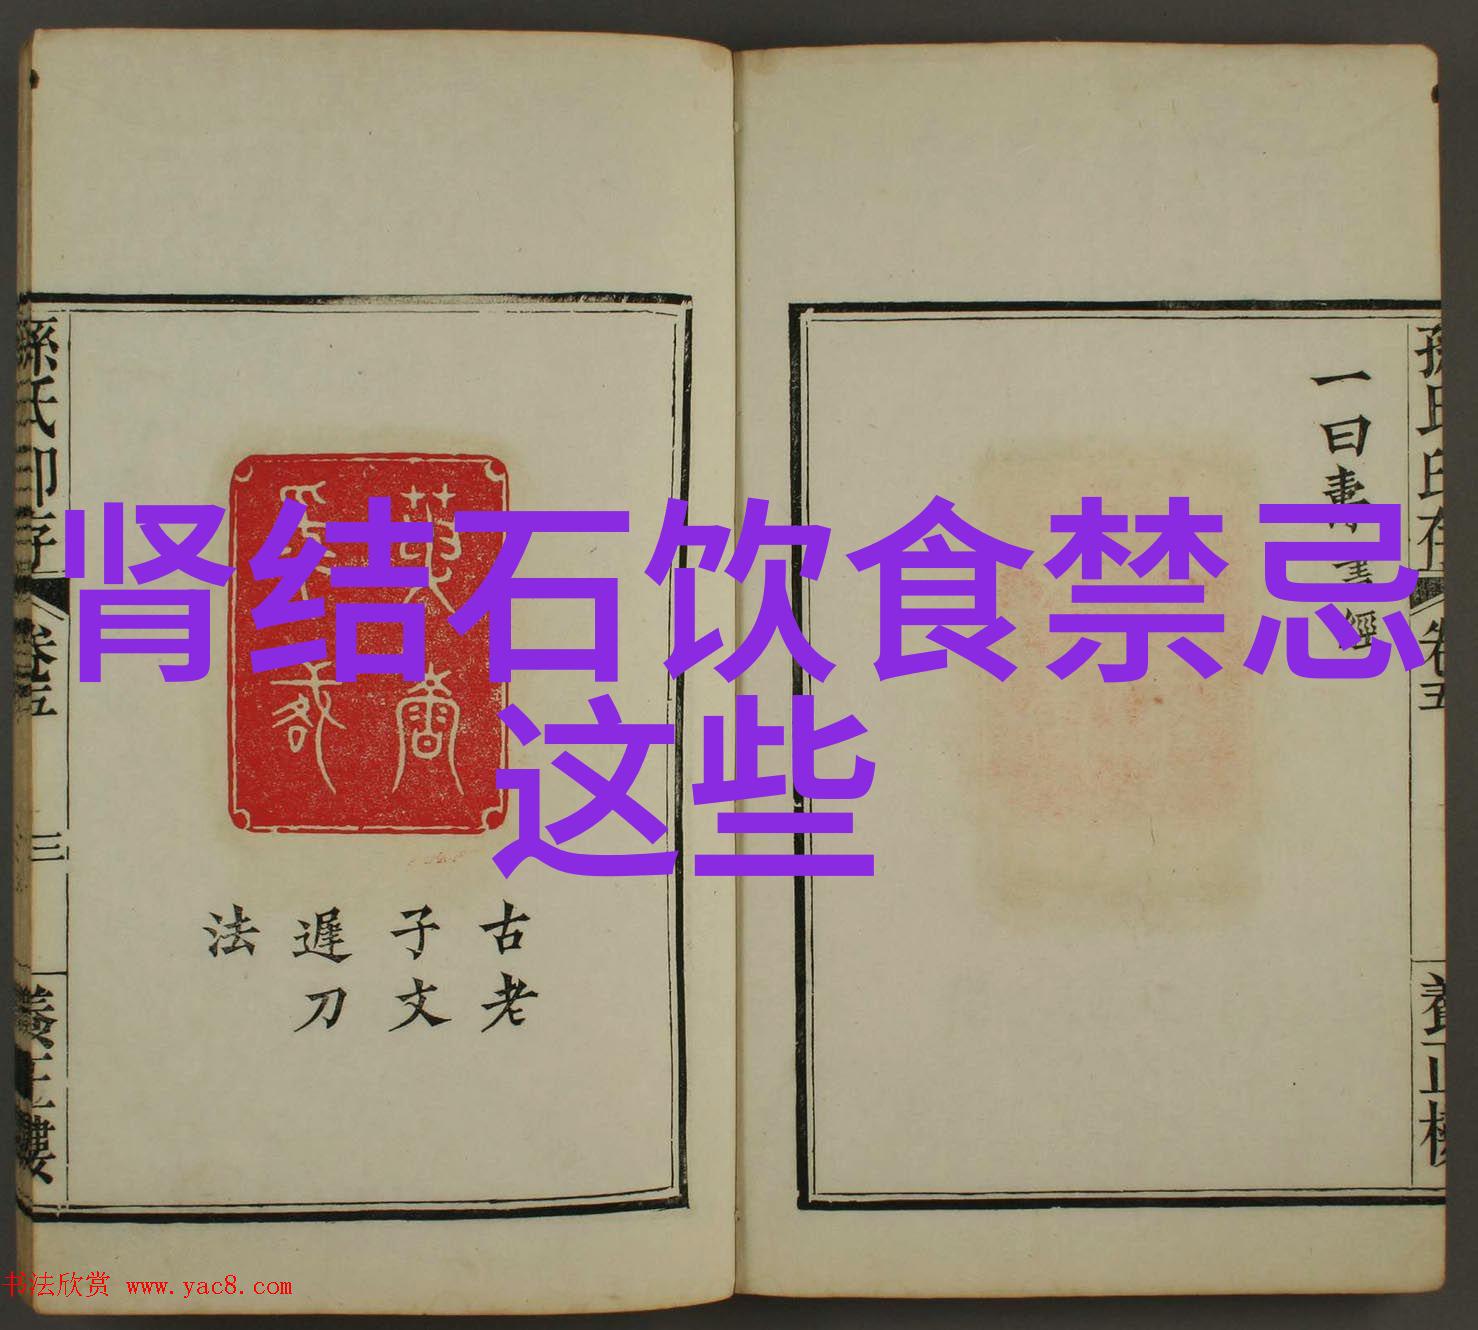 肾结石饮食禁忌
这些
一曰
經
孫氏印存
卷五
養正樓
古老
子文
遲刀
法
孫氏印存
卷五
三
養正樓
书法欣赏 www.yac8.com